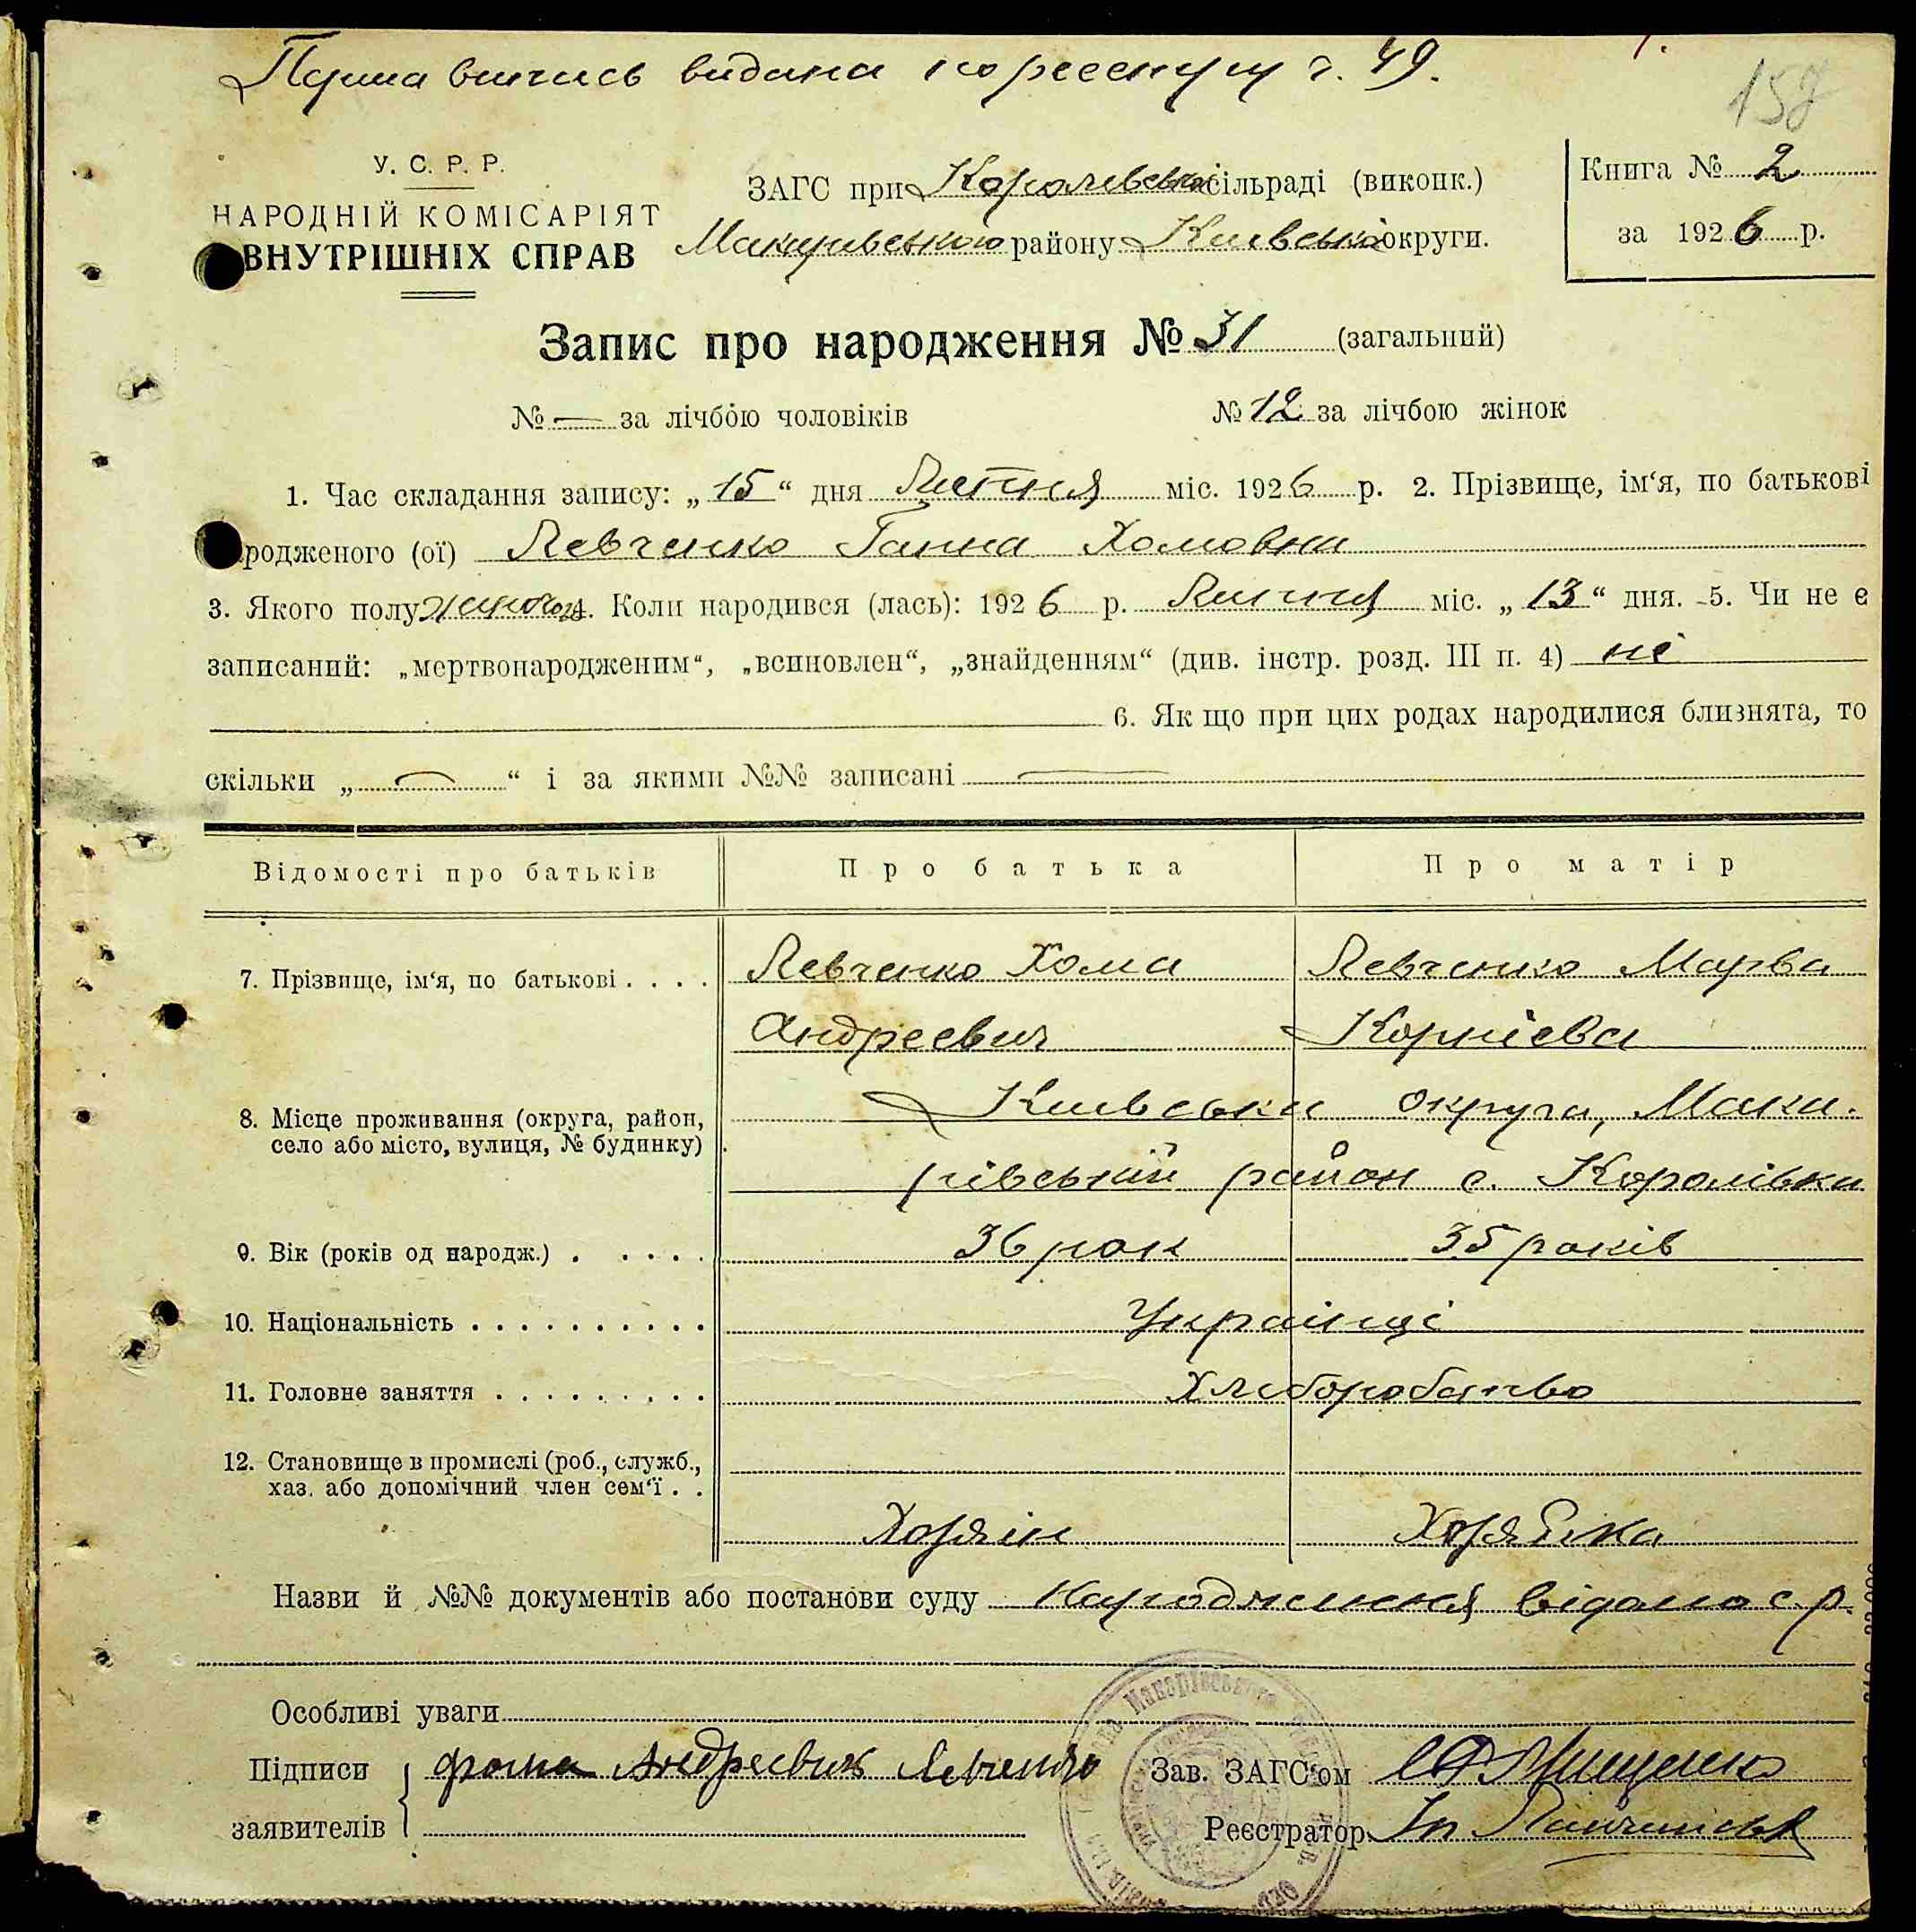 Перша випись видана по реєстру ч. 49.
157
У. С. Р. Р.
НАРОДНІЙ КОМІСАРІЯТ
ВНУТРІШНІХ СПРАВ
ЗАГС при Королівській сільраді (виконк.)
Макарівського району Київської округи.
Книга № 2
за 1926 р.
Запис про народження № 31 (загальний)
№ — за лічбою чоловіків № 12 за лічбою жінок
1. Час складання запису: „15“ дня Липня міс. 1926 р. 2. Прізвище, ім‘я, по батькові
родженого (ої) Левченко Ганна Хомовна
3. Якого полу жіночого 4. Коли народився (лась): 1926 р. Липня міс. „13“ дня. 5. Чи не є
записаний: „мертвонародженим“, „всиновлен“, „знайденням“ (див. інстр. розд. III п. 4) ні
6. Як що при цих родах народилися близнята, то
скільки „—“ і за якими №№ записані —
Відомості про батьків Про батька Про матір
7. Прізвище, ім‘я, по батькові . . . . Левченко Хома Левченко Марва
Андреевич Корнієва
8. Місце проживання (округа, район, село або місто, вулиця, № будинку) Київська округа, Мака-
рівський район с. Королівка
9. Вік (років од народж.) . . . . . 36 рок 35 років
10. Національність . . . . . . . . . . Українці
11. Головне заняття . . . . . . . . . Хліборобство
12. Становище в промислі (роб., служб.,
хаз. або допомічний член сем‘ї . .
Хозяїн Хозяйка
Назви й №№ документів або постанови суду Народження відомо с. р.
Особливі уваги
Підписи фома Андреевич Левченко Зав. ЗАГС‘ом
заявителів Реєстратор